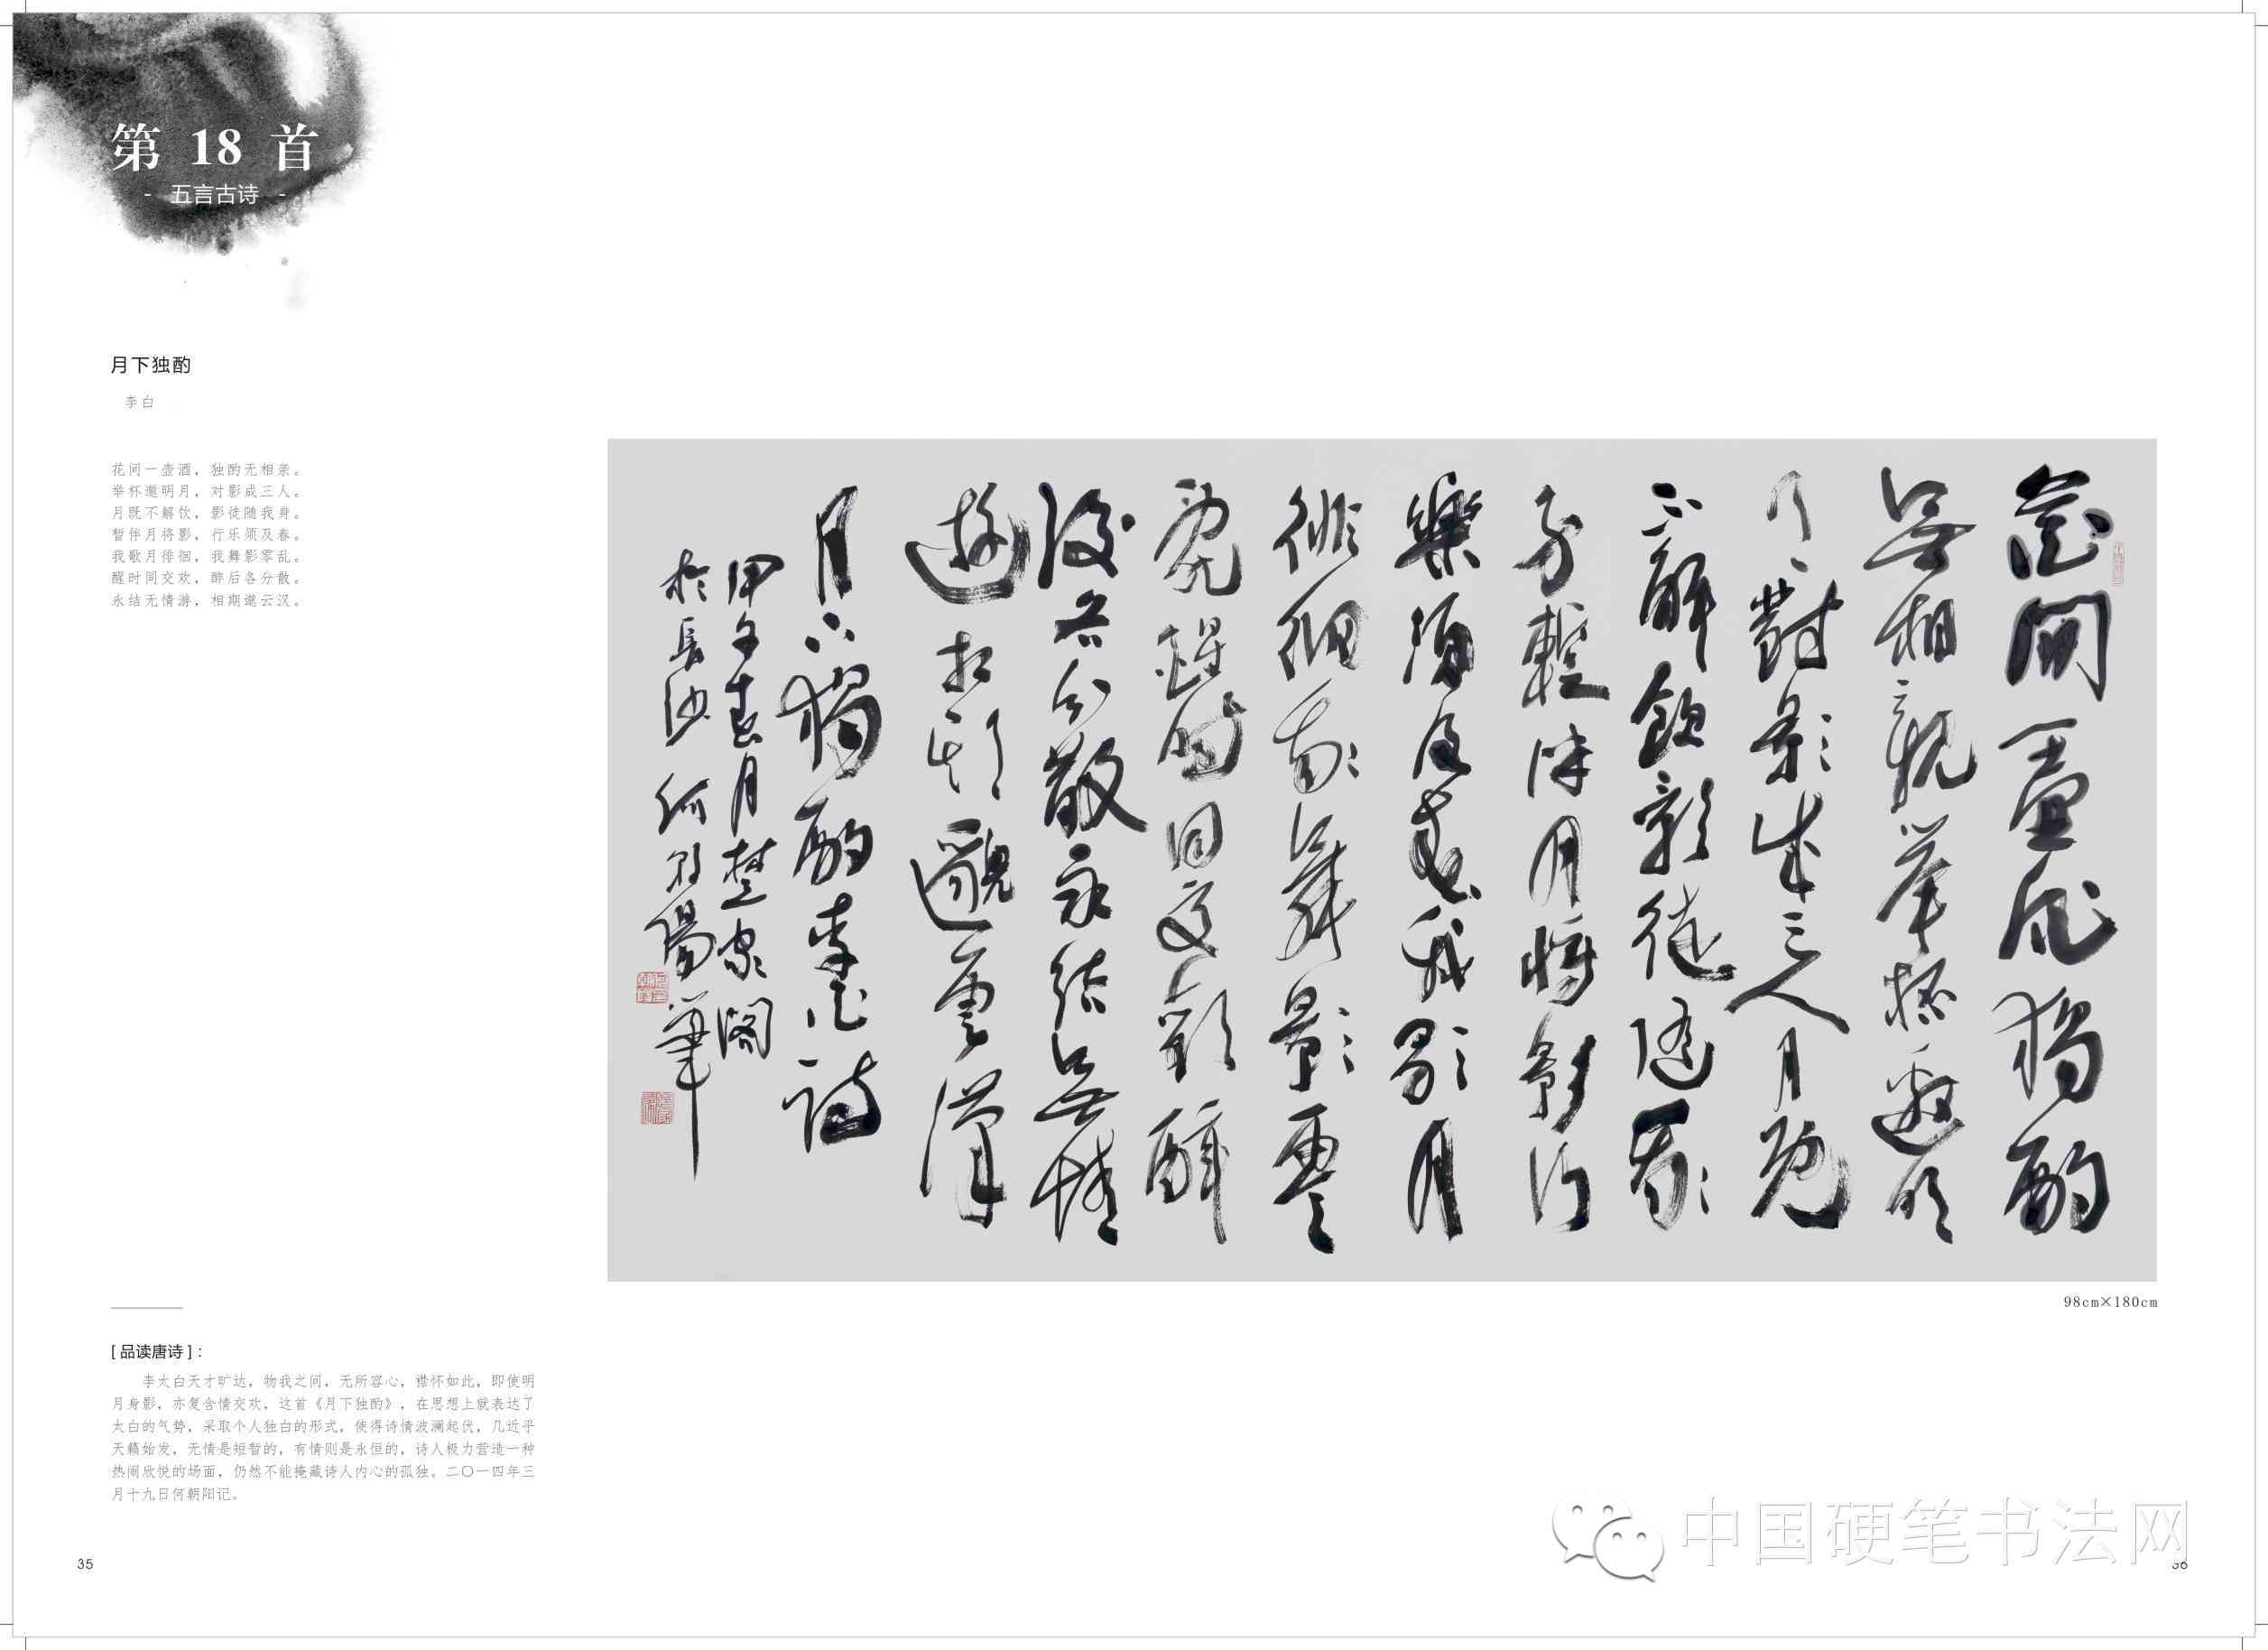 第 18 首
- 五言古诗 -
月下独酌
李白
花间一壶酒，独酌无相亲。
举杯邀明月，对影成三人。
月既不解饮，影徒随我身。
暂伴月将影，行乐须及春。
我歌月徘徊，我舞影零乱。
醒时同交欢，醉后各分散。
永结无情游，相期邈云汉。
花間一壺酒獨酌
無相親舉杯邀明
月對影成三人月既
不解飲影徒隨我
身暫伴月將影行
樂須及春我歌月
徘徊我舞影零
亂醒時同交歡醉
後各分散永結無情
遊相期邈雲漢
月下獨酌李白詩
甲午春月楚家閣
於長沙何朝陽筆
98cm×180cm
[ 品读唐诗 ]：
李太白天才旷达，物我之间，无所容心，襟怀如此，即使明
月身影，亦复含情交欢，这首《月下独酌》，在思想上就表达了
太白的气势，采取个人独白的形式，使得诗情波澜起伏，几近乎
天籁始发，无情是短暂的，有情则是永恒的，诗人极力营造一种
热闹欣悦的场面，仍然不能掩藏诗人内心的孤独。二〇一四年三
月十九日何朝阳记。
35
中国硬笔书法网